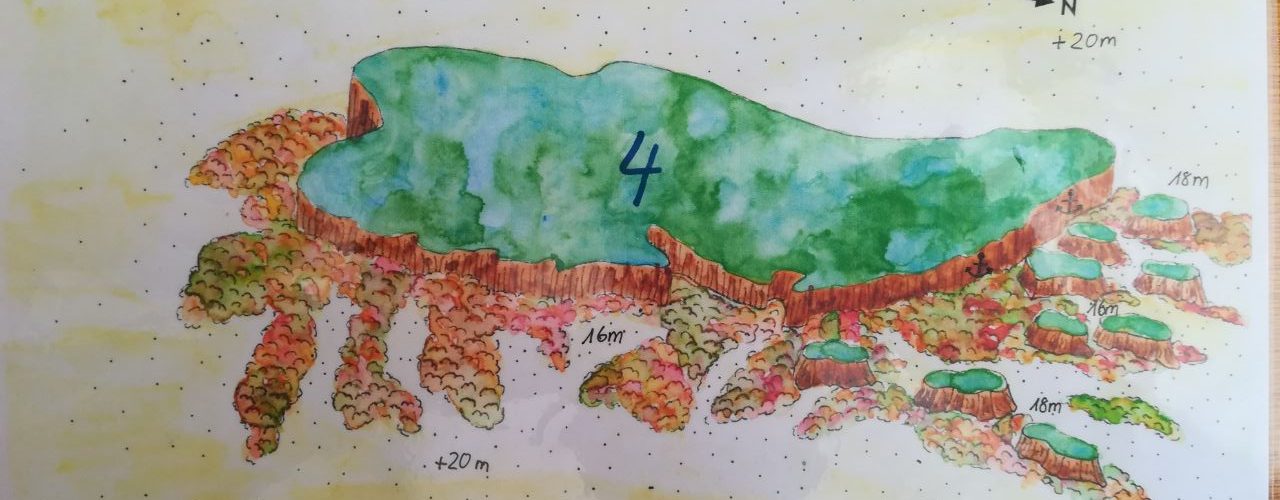 N
+20m
4
18m
16m
16m
18m
+20m